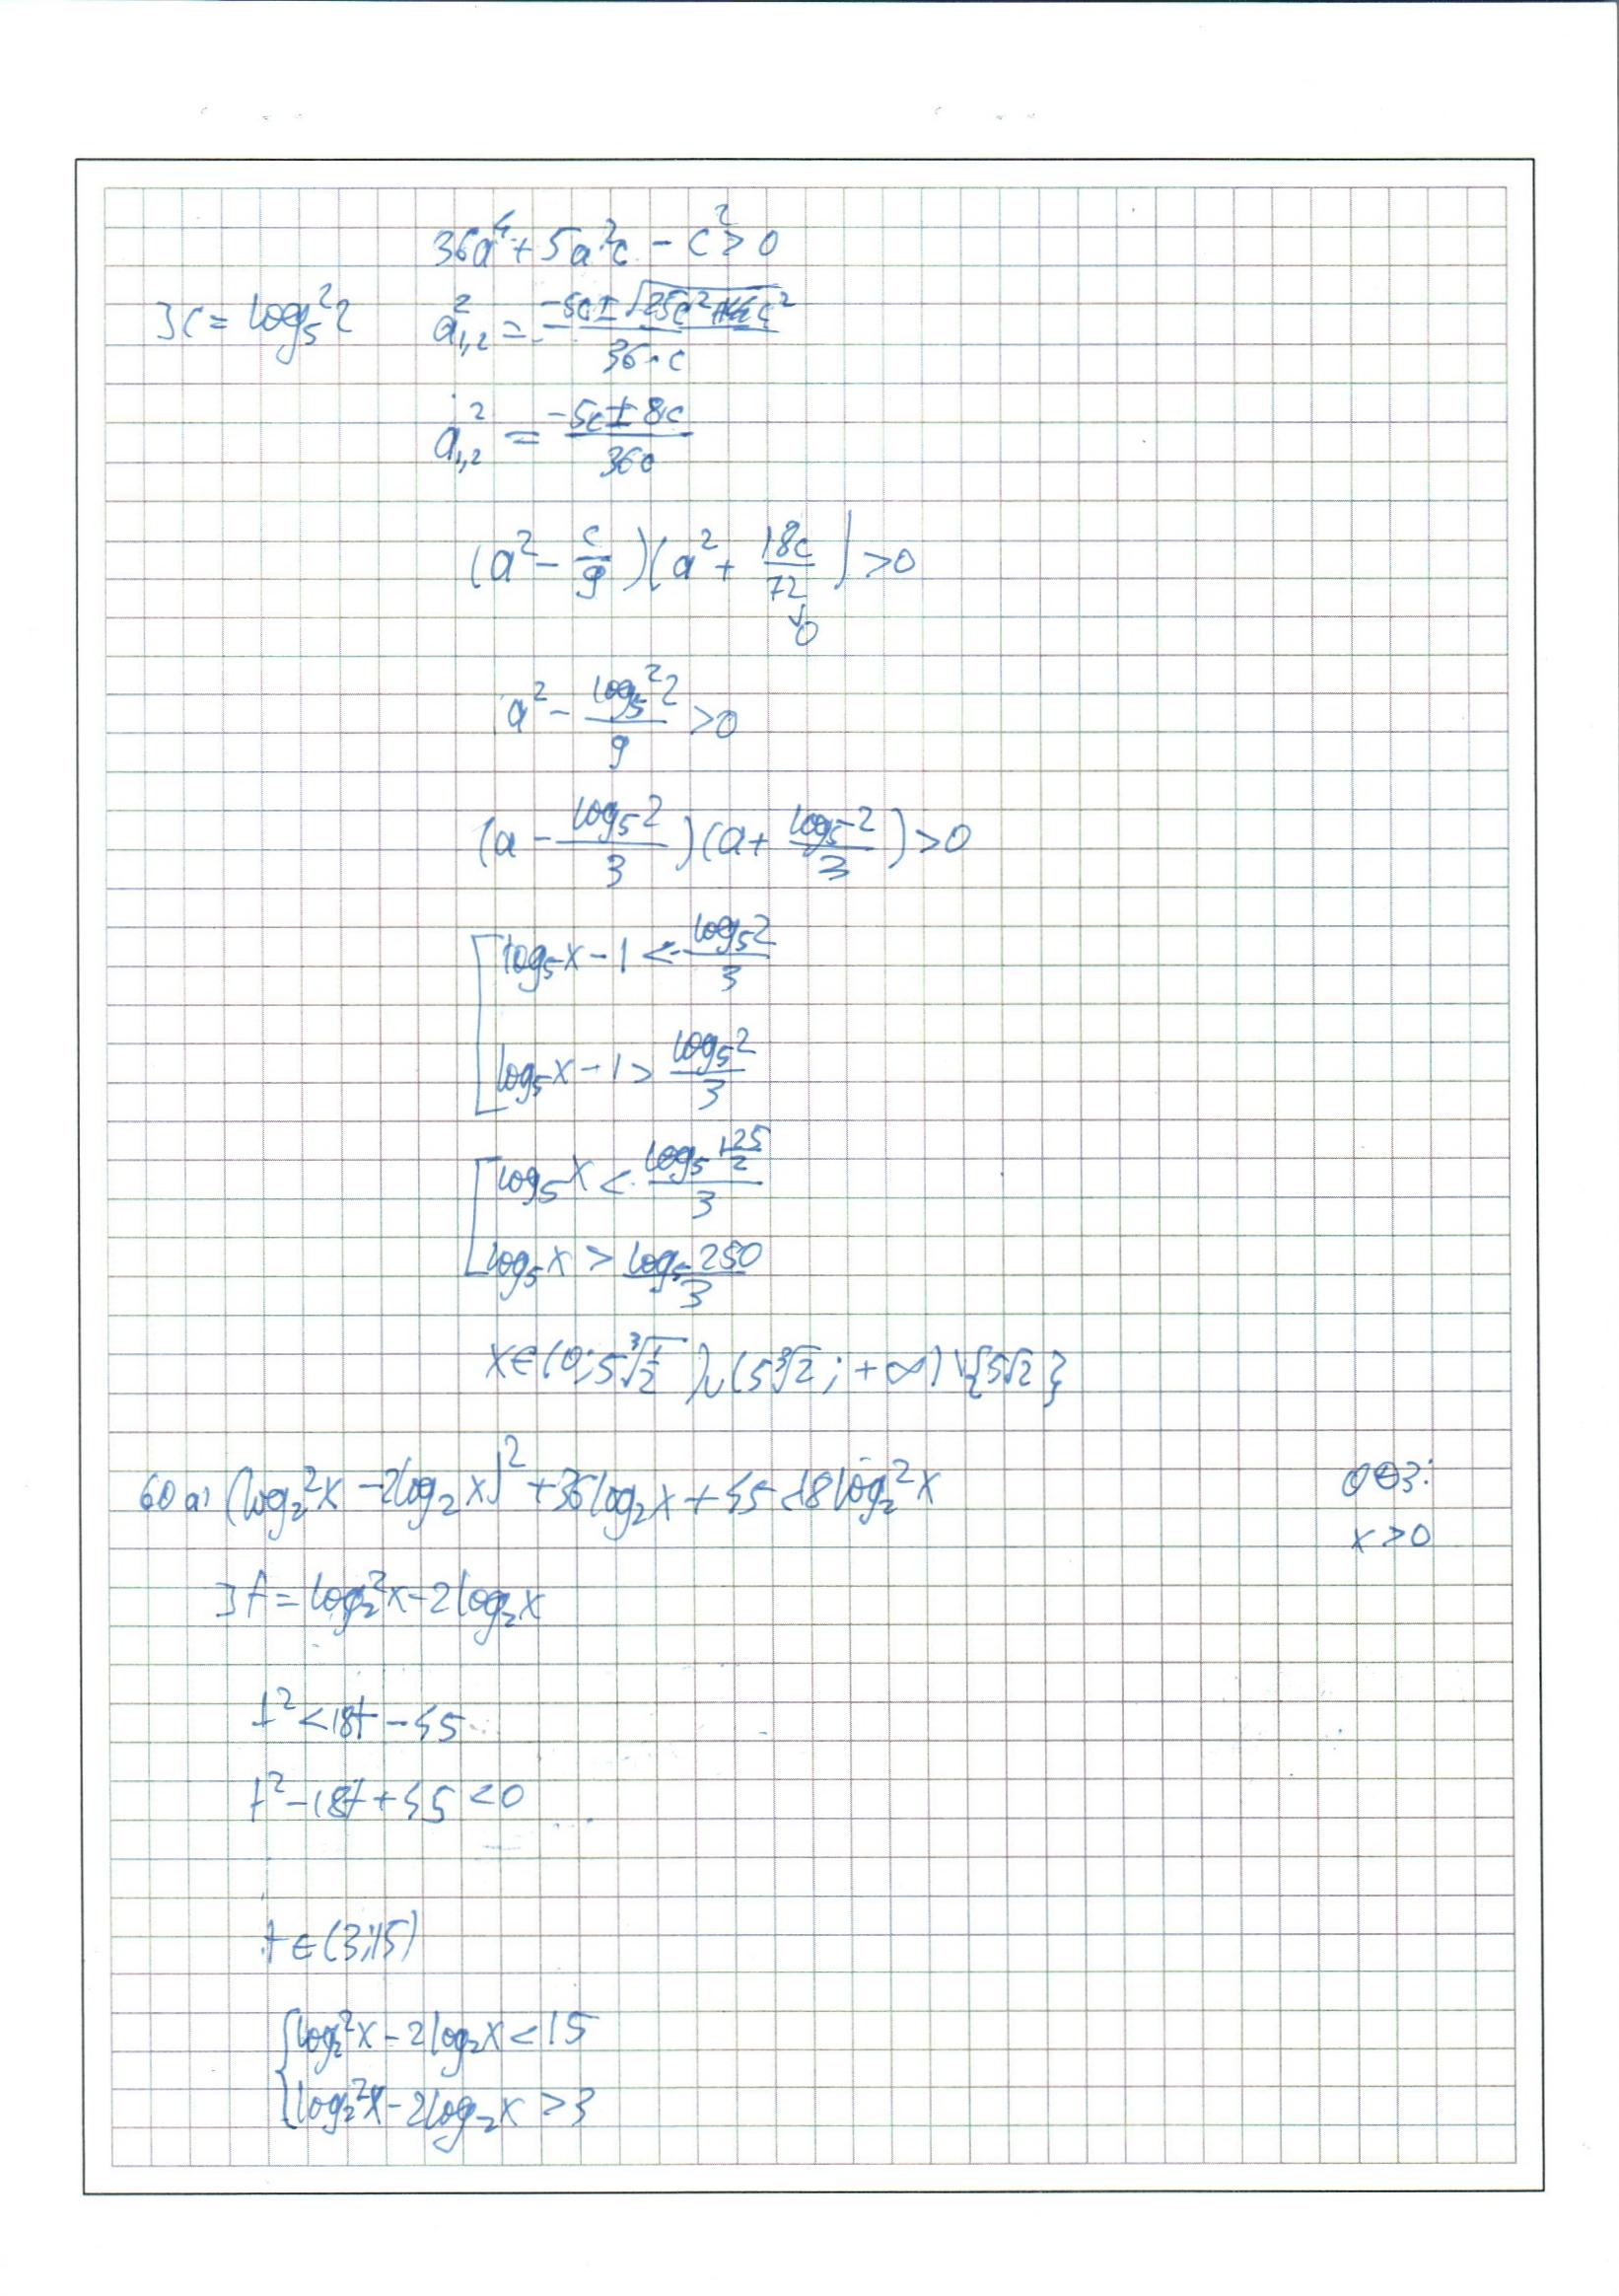 36a⁴ + 5a²c - c² > 0
∃c = log₅²2 a²₁,₂ = (-5c ± √(25c² + 144c²))/(36·c)
a²₁,₂ = (-5c ± 8c)/(36c)
(a² - c/9)(a² + 18c/72) > 0
∨0
a² - log₅²2/9 > 0
(a - log₅2/3)(a + log₅2/3) > 0
[log₅x - 1 < -log₅2/3
log₅x - 1 > log₅2/3
[log₅x < log₅(125/2)/3
log₅x > log₅250/3
x∈(0; 5∛(1/2)) ∪ (5∛2; +∞) \ {5√2}
60 a) (log₂²x - 2log₂x)² + 36log₂x + 45 < 18log₂²x ОДЗ:
x > 0
∃t = log₂²x - 2log₂x
t² < 18t - 45
t² - 18t + 45 < 0
t ∈ (3;15)
{log₂²x - 2log₂x < 15
log₂²x - 2log₂x > 3